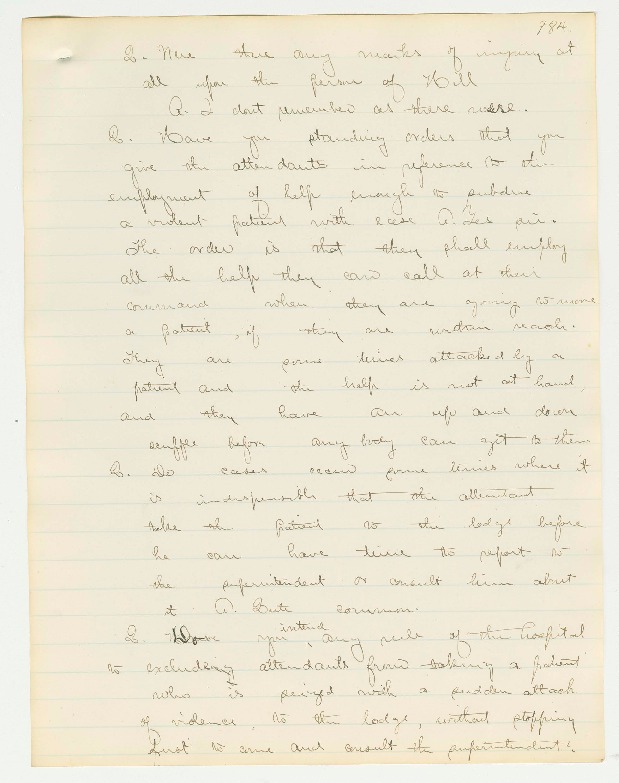 984.
Q. Were there any marks of injury at
all upon the person of Hill
A. I dont remember as there were.
Q. Have you standing orders that you
give the attendants in reference to the
employment of help enough to subdue
a violent patient with ease A. Yes sir.
The order is that they shall employ
all the help they can call at their
command when they are going to move
a patient, if they are within reach.
They are some times attacked by a
patient and the help is not at hand,
and they have an up and down
scuffle before any body can get to them
Q. Do cases occur some times where it
is indispensible that the attendant
take the patient to the lodge before
he can have time to report to
the superintendent or consult him about
it A. Quite common.
Q. Do you intend, any rule of the hospital
to excluding attendants from taking a patient
who is seized with a sudden attack
of violence, to the lodge, without stopping
first to come and consult the superintendent?